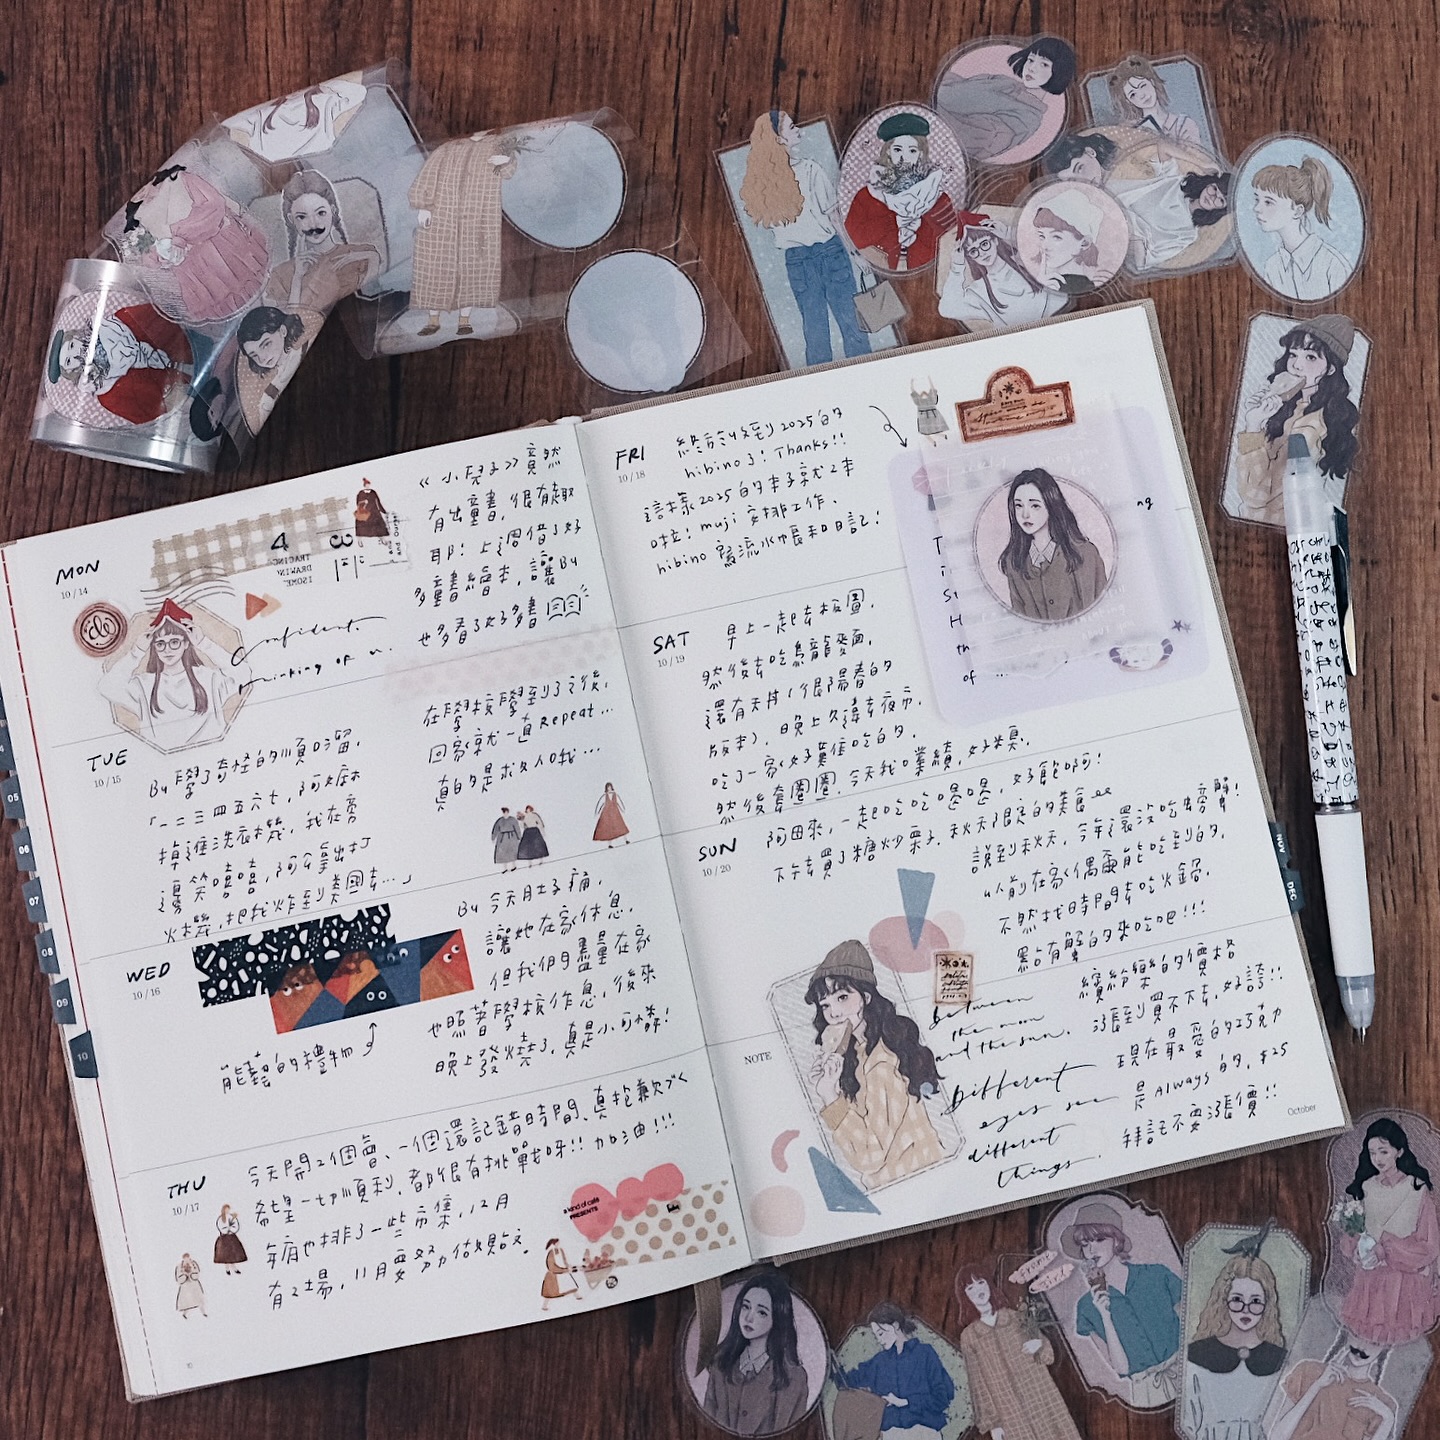 MON
10 / 14
4
《小兒子》竟然
有出童書,很有趣
耶!上週借了好
多童書繪本,讓By
也多看了好多書
Confident.
thinking of u.
TUE
10 / 15
By學了奇怪的順口溜,
「一二三四五六七,阿嬤
掉進洗衣機,我在旁
邊笑嘻嘻,阿公拿出打
火機,把我炸到美國去…」
在學校學到了之後,
回家就一直Repeat…
真的是求女人哦…
WED
10 / 16
能藝的禮物
By今天肚子痛,
讓她在家休息,
但我們盡量在家
也照著學校作息,後來
晚上發燒了,真是小可憐!
THU
10 / 17
今天開2個會、一個還記錯時間、真抱歉
希望一切順利,都很有挑戰呀!!加油!!!
年底也排了一些市集,12月
有2場,11月要努力做
a kind of café
PRESENTS
FRI
10 / 18
終於收到2025的
hibino了!Thanks!!
這樣2025的本子就2本
啦!muji安排工作、
hibino寫流水帳和日記!
SAT
10 / 19
早上一起去板圖,
然後去吃烏龍麵,
還有天丼(很陽春的
版本),晚上久違去夜市,
吃了一家好難吃的,
然後套圈圈,今天我業績,好糗,
SUN
10 / 20
阿田來,一起吃吃喝喝,好飽啊!
下午去買了糖炒栗子,秋天限定的美食
說到秋天,今年還沒吃螃蟹!
以前在家偶爾能吃到的,
不然找時間去吃火鍋,
點有蟹的來吃吧!!!
NOTE
between
the moon
and the sun.
Different
eyes see
different
things.
繽紛樂的價格
漲到買不下去,好誇!!
現在最愛的巧克力
是Always的,$25
拜託不要漲價!!
October